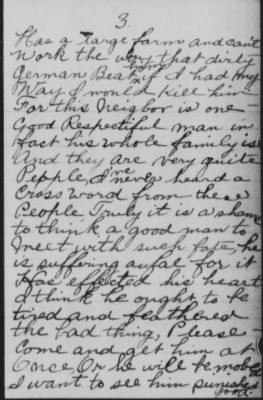 3.
Has a large farm and can't
Work the way that dirty
German Beat him if I had my
Way I would Kill him
For this Neigbor is one
Good Respectiful man in
Fact his whole family is
And they are very quite
Pepple, I've never heard a
Cross word from these
People Truly it is a shame
to think a good man to
Meet with such fate, he
is suffering auful for it
Has effected his heart
I think he ought to be
tired and feathered
the bad thing, Please
Come and get him at
Once Or he will be mobed
I want to see him punished
good.